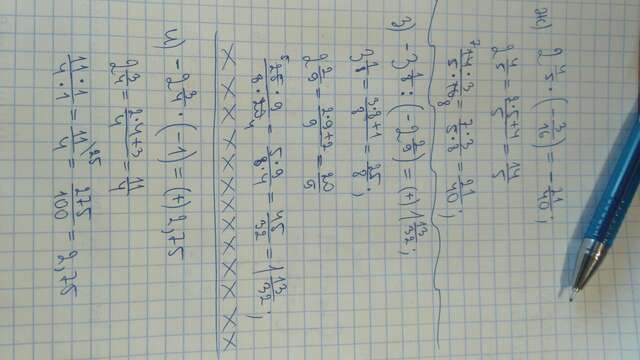 ж) 2 4/5 · (- 3/16) = - 21/40;
2 4/5 = 2·5+4/5 = 14/5
7 14·3/5·16 8 = 7·3/5·8 = 21/40;
з) -3 1/8 : (-2 2/9) = (+) 1 13/32;
3 1/8 = 3·8+1/8 = 25/8;
2 2/9 = 2·9+2/9 = 20/9
5 25·9/8·20 4 = 5·9/8·4 = 45/32 = 1 13/32;
x x x x x x x x x x x x x x x x
и) -2 3/4 · (-1) = (+) 2,75
2 3/4 = 2·4+3/4 = 11/4
11·1/4·1 = 11/4 \25 = 275/100 = 2,75